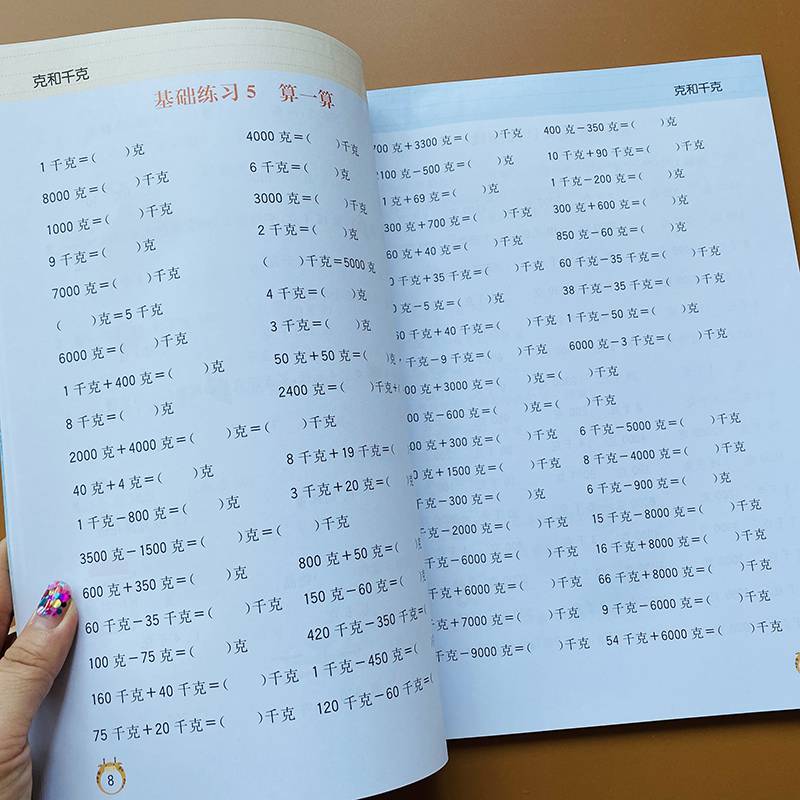 克和千克
基础练习5 算一算
1千克=( )克
8000克=( )千克
1000克=( )千克
9千克=( )克
7000克=( )千克
( )克=5千克
6000克=( )千克
1千克+400克=( )克
8千克=( )克
2000克+4000克=( )克=( )千克
40克+4克=( )克
1千克-800克=( )克
3500克-1500克=( )克=( )千克
600克+350克=( )克
60千克-35千克=( )千克
100克-75克=( )克
160千克+40千克=( )千克
75千克+20千克=( )千克
4000克=( )千克
6千克=( )克
3000克=( )千克
2千克=( )克
( )千克=5000克
4千克=( )克
3千克=( )克
50克+50克=( )克
2400克=( )千克+
8千克+19千克=(
3千克+20克=(
800克+50克=(
150克-60克=(
420千克-350千克=(
1千克-450克=(
120千克-60千克=(
8
克和千克
700克+3300克=( )千克
100克-500克=( )克
1克+69克=( )克
300克+700克=( )千克
60克+40克=( )千克
0千克+35千克=( )千克
0克-5克=( )克
60千克+40千克=( )千克
千克-9千克=( )千克
00克+3000克=( )克=( )千克
00克-600克=( )克=( )千克
00克+300克=( )千克
0克+1500克=( )千克
千克-300克=( )克
千克-2000克=( )千克
千克-6000克=( )千克
千克+6000克=( )千克
千克+7000克=( )千克
千克-9000克=( )千克
400克-350克=( )克
10千克+90千克=( )千克
1千克-200克=( )克
300克+600克=( )克
850克-60克=( )克
60千克-35千克=( )千克
38千克-35千克=( )千克
1千克-50克=( )克
6000克-3千克=( )千克
6千克-5000克=( )千克
8千克-4000克=( )千克
6千克-900克=( )克
15千克-8000克=( )千克
16千克+8000克=( )千克
66千克+8000克=( )千克
9千克-6000克=( )千克
54千克+6000克=( )千克